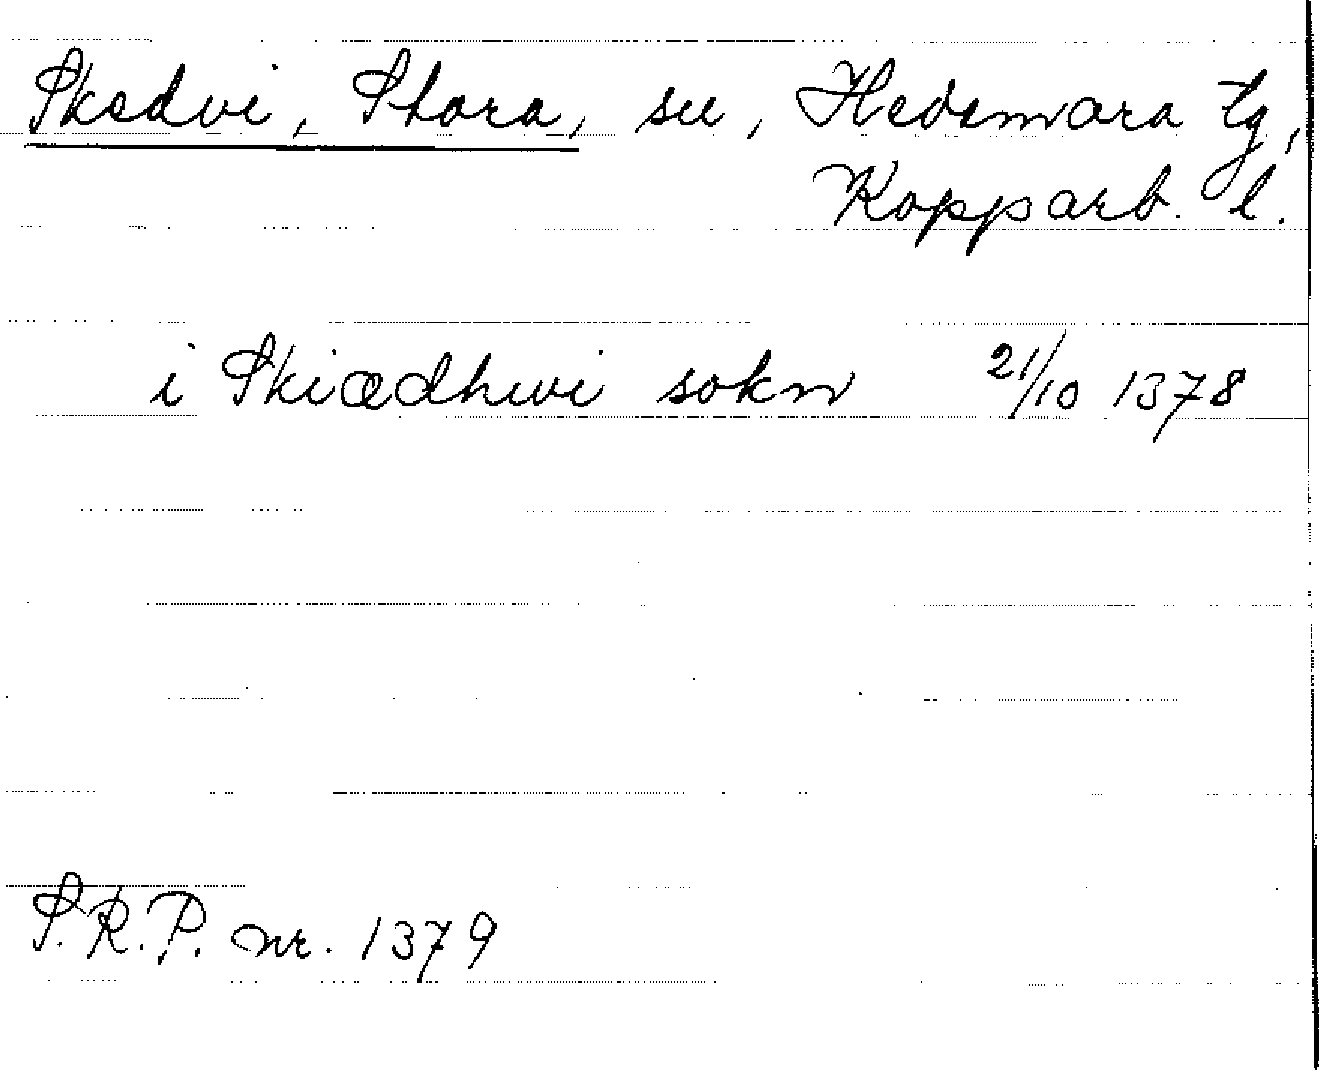 Skedvi, Stora, sn, Hedemora tg,
Kopparb. l.
i Skiædhwi sokn 21/10 1378
S.R.P. nr. 1379